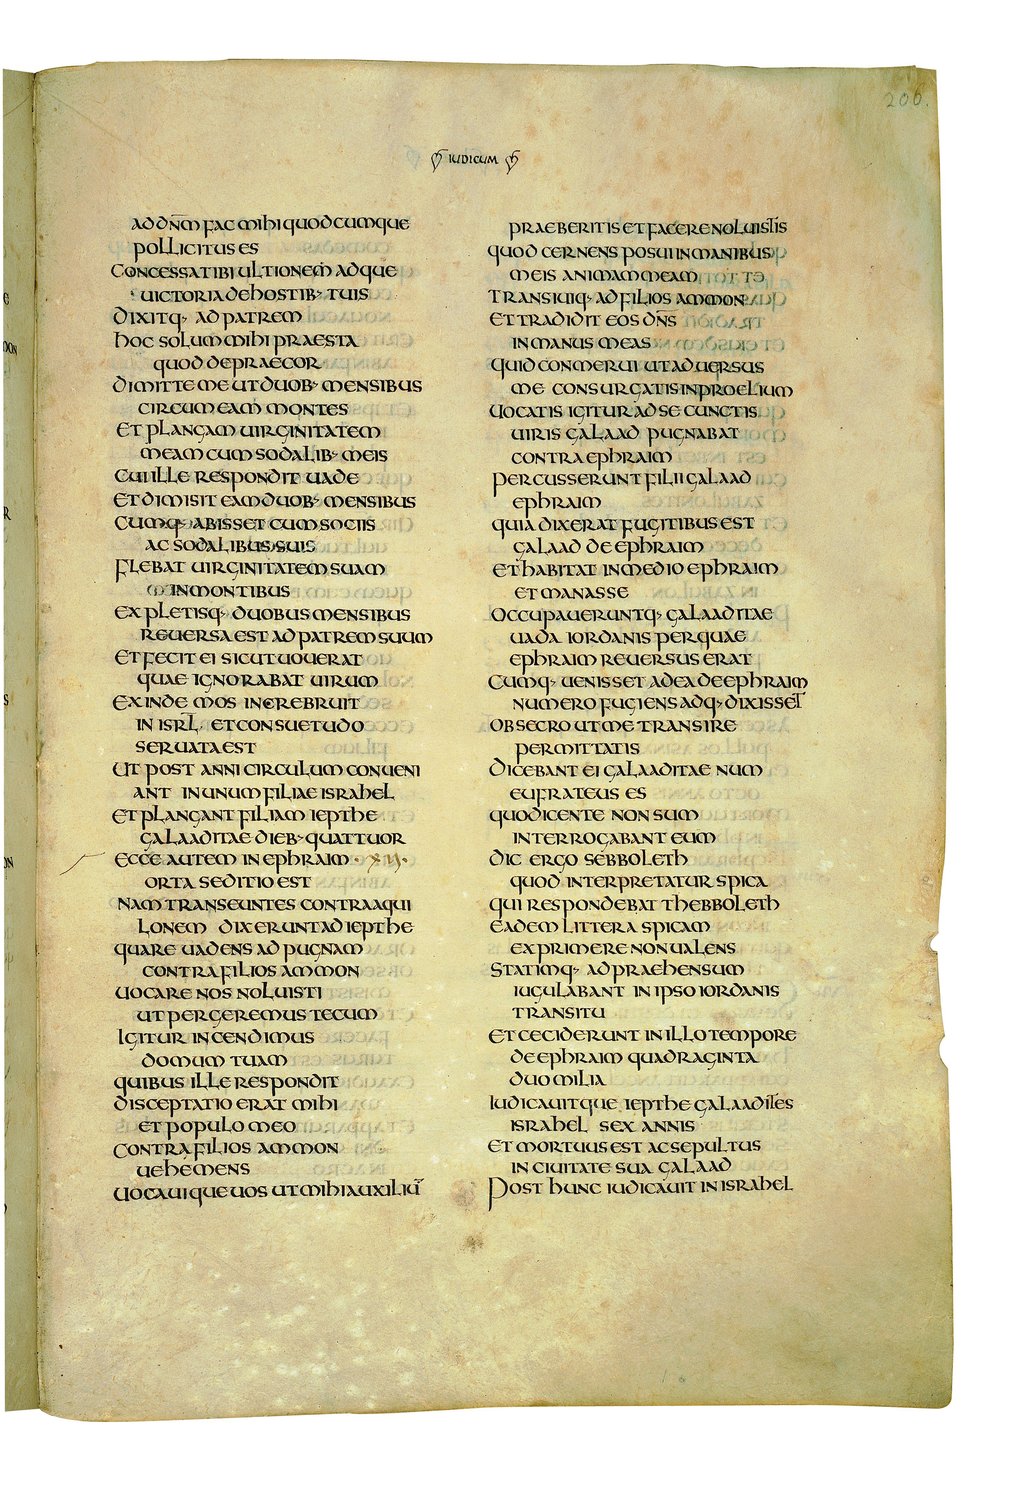 206.
IUDICUM
AD DN̄M FAC MIHI QUODCUMQUE
POLLICITUS ES
CONCESSA TIBI ULTIONEM ADQUE
UICTORIA DE HOSTIB· TUIS
DIXITQ· AD PATREM
HOC SOLUM MIHI PRAESTA
QUOD DEPRAECOR
DIMITTE ME UT DUOB· MENSIBUS
CIRCUMEAM MONTES
ET PLANGAM UIRGINITATEM
MEAM CUM SODALIB· MEIS
CUI ILLE RESPONDIT UADE
ET DIMISIT EAM DUOB· MENSIBUS
CUMQ· ABISSET CUM SOCIIS
AC SODALIBUS SUIS
FLEBAT UIRGINITATEM SUAM
IN MONTIBUS
EXPLETISQ· DUOBUS MENSIBUS
REUERSA EST AD PATREM SUUM
ET FECIT EI SICUT UOUERAT
QUAE IGNORABAT UIRUM
EXINDE MOS INCREBRUIT
IN ISRL̄· ET CONSUETUDO
SERUATA EST
UT POST ANNI CIRCULUM CONUENI
ANT IN UNUM FILIAE ISRAHEL
ET PLANGANT FILIAM IEPTHE
GALAADITAE DIEB· QUATTUOR
ECCE AUTEM IN EPHRAIM · XII·
ORTA SEDITIO EST
NAM TRANSEUNTES CONTRA AQUI
LONEM DIXERUNT AD IEPTHE
QUARE UADENS AD PUGNAM
CONTRA FILIOS AMMON
UOCARE NOS NOLUISTI
UT PERGEREMUS TECUM
IGITUR INCENDIMUS
DOMUM TUAM
QUIBUS ILLE RESPONDIT
DISCEPTATIO ERAT MIHI
ET POPULO MEO
CONTRA FILIOS AMMON
UEHEMENS
UOCAUIQUE UOS UT MIHI AUXILIŪ
PRAEBERITIS ET FACERE NOLUISTIS
QUOD CERNENS POSUI IN MANIBUS
MEIS ANIMAM MEAM
TRANSIUIQ· AD FILIOS AMMON
ET TRADIDIT EOS DN̄S
IN MANUS MEAS
QUID CONMERUI UT ADUERSUS
ME CONSURGATIS IN PROELIUM
UOCATIS IGITUR AD SE CUNCTIS
UIRIS GALAAD PUGNABAT
CONTRA EPHRAIM
PERCUSSERUNT FILII GALAAD
EPHRAIM
QUIA DIXERAT FUGITIBUS EST
GALAAD DE EPHRAIM
ET HABITAT IN MEDIO EPHRAIM
ET MANASSE
OCCUPAUERUNTQ· GALAADITAE
UADA IORDANIS PER QUAE
EPHRAIM REUERSUS ERAT
CUMQ· UENISSET AD EA DE EPHRAIM
NUMERO FUGIENS ADQ· DIXISSET
OBSECRO UT ME TRANSIRE
PERMITTATIS
DICEBANT EI GALAADITAE NUM
EUFRATEUS ES
QUO DICENTE NON SUM
INTERROGABANT EUM
DIC ERGO SEBBOLETH
QUOD INTERPRETATUR SPICA
QUI RESPONDEBAT THEBBOLETH
EADEM LITTERA SPICAM
EXPRIMERE NON UALENS
STATIMQ· ADPRAEHENSUM
IUGULABANT IN IPSO IORDANIS
TRANSITU
ET CECIDERUNT IN ILLO TEMPORE
DE EPHRAIM QUADRAGINTA
DUO MILIA
IUDICAUITQUE IEPTHE GALAADITES
ISRAHEL SEX ANNIS
ET MORTUUS EST AC SEPULTUS
IN CIUITATE SUA GALAAD
POST HUNC IUDICAUIT IN ISRAHEL